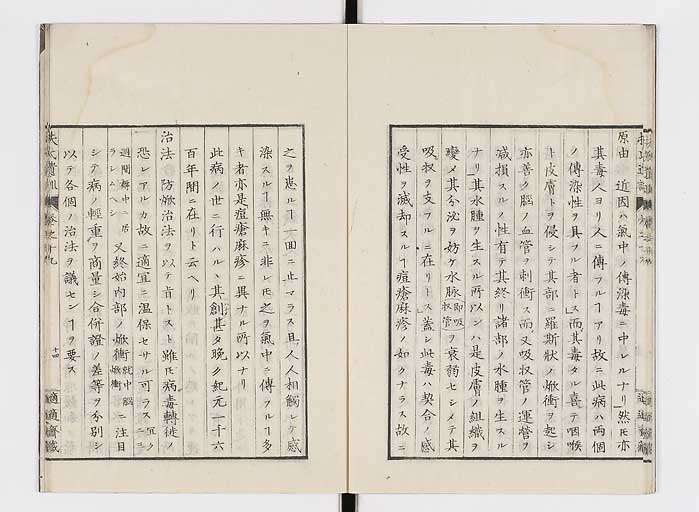 原由 近因ハ氣中ノ傳染毒ニ中レルナリ然𪜈亦
其毒人ヨリ人ニ傳フルヿアリ故ニ此病ハ両個
ノ傳染性ヲ具フル者トス而〆其毒タル喜テ咽喉
ト皮膚トヲ侵シテ其部ニ羅斯狀ノ焮衝ヲ起シ
亦善ク腦ノ血管ヲ刺衝ス而又吸収管ノ運營ヲ
减損スルノ性有テ其終リ諸部ノ水腫ヲ生スル
ナリ其水腫ヲ生スル所以ンハ是皮膚ノ組織ヲ
變メ其分泌ヲ妨ケ水脉即吸収管ヲ衰弱セシメテ其
吸収ヲ支フルニ在リトス蓋シ此毒ハ契合ノ感
受性ヲ滅却スルヿ痘瘡麻疹ノ如クナラス故ニ
之ヲ患ルヿ一回ニ止マラス且人人相觸レテ感
染スルヿ無キニ非レ𪜈之ヲ氣中ニ傳フルヿ多
キ者亦是痘瘡麻疹ニ異ナル所以ナリ
此病ノ世ニ行ハルヽ其創甚タ晩ク紀元一千六
百年間ニ在リト云ヘリ
治法 防焮治法ヲ以テ肯トスト雖𪜈病毒轉徙ノ
恐レアルカ故ニ適宜ニ温保セサル可ラス宜ク二三
週間褥中ニ居ラシムヘシ又終始内部ノ焮衝就中腦焮衝ニ注目
シテ病ノ輕重ヲ商量シ合併證ノ差等ヲ分別シ
以テ各個ノ治法ヲ議センヿヲ要ス
扶氏遺訓 卷之十九 十四 適適齋藏